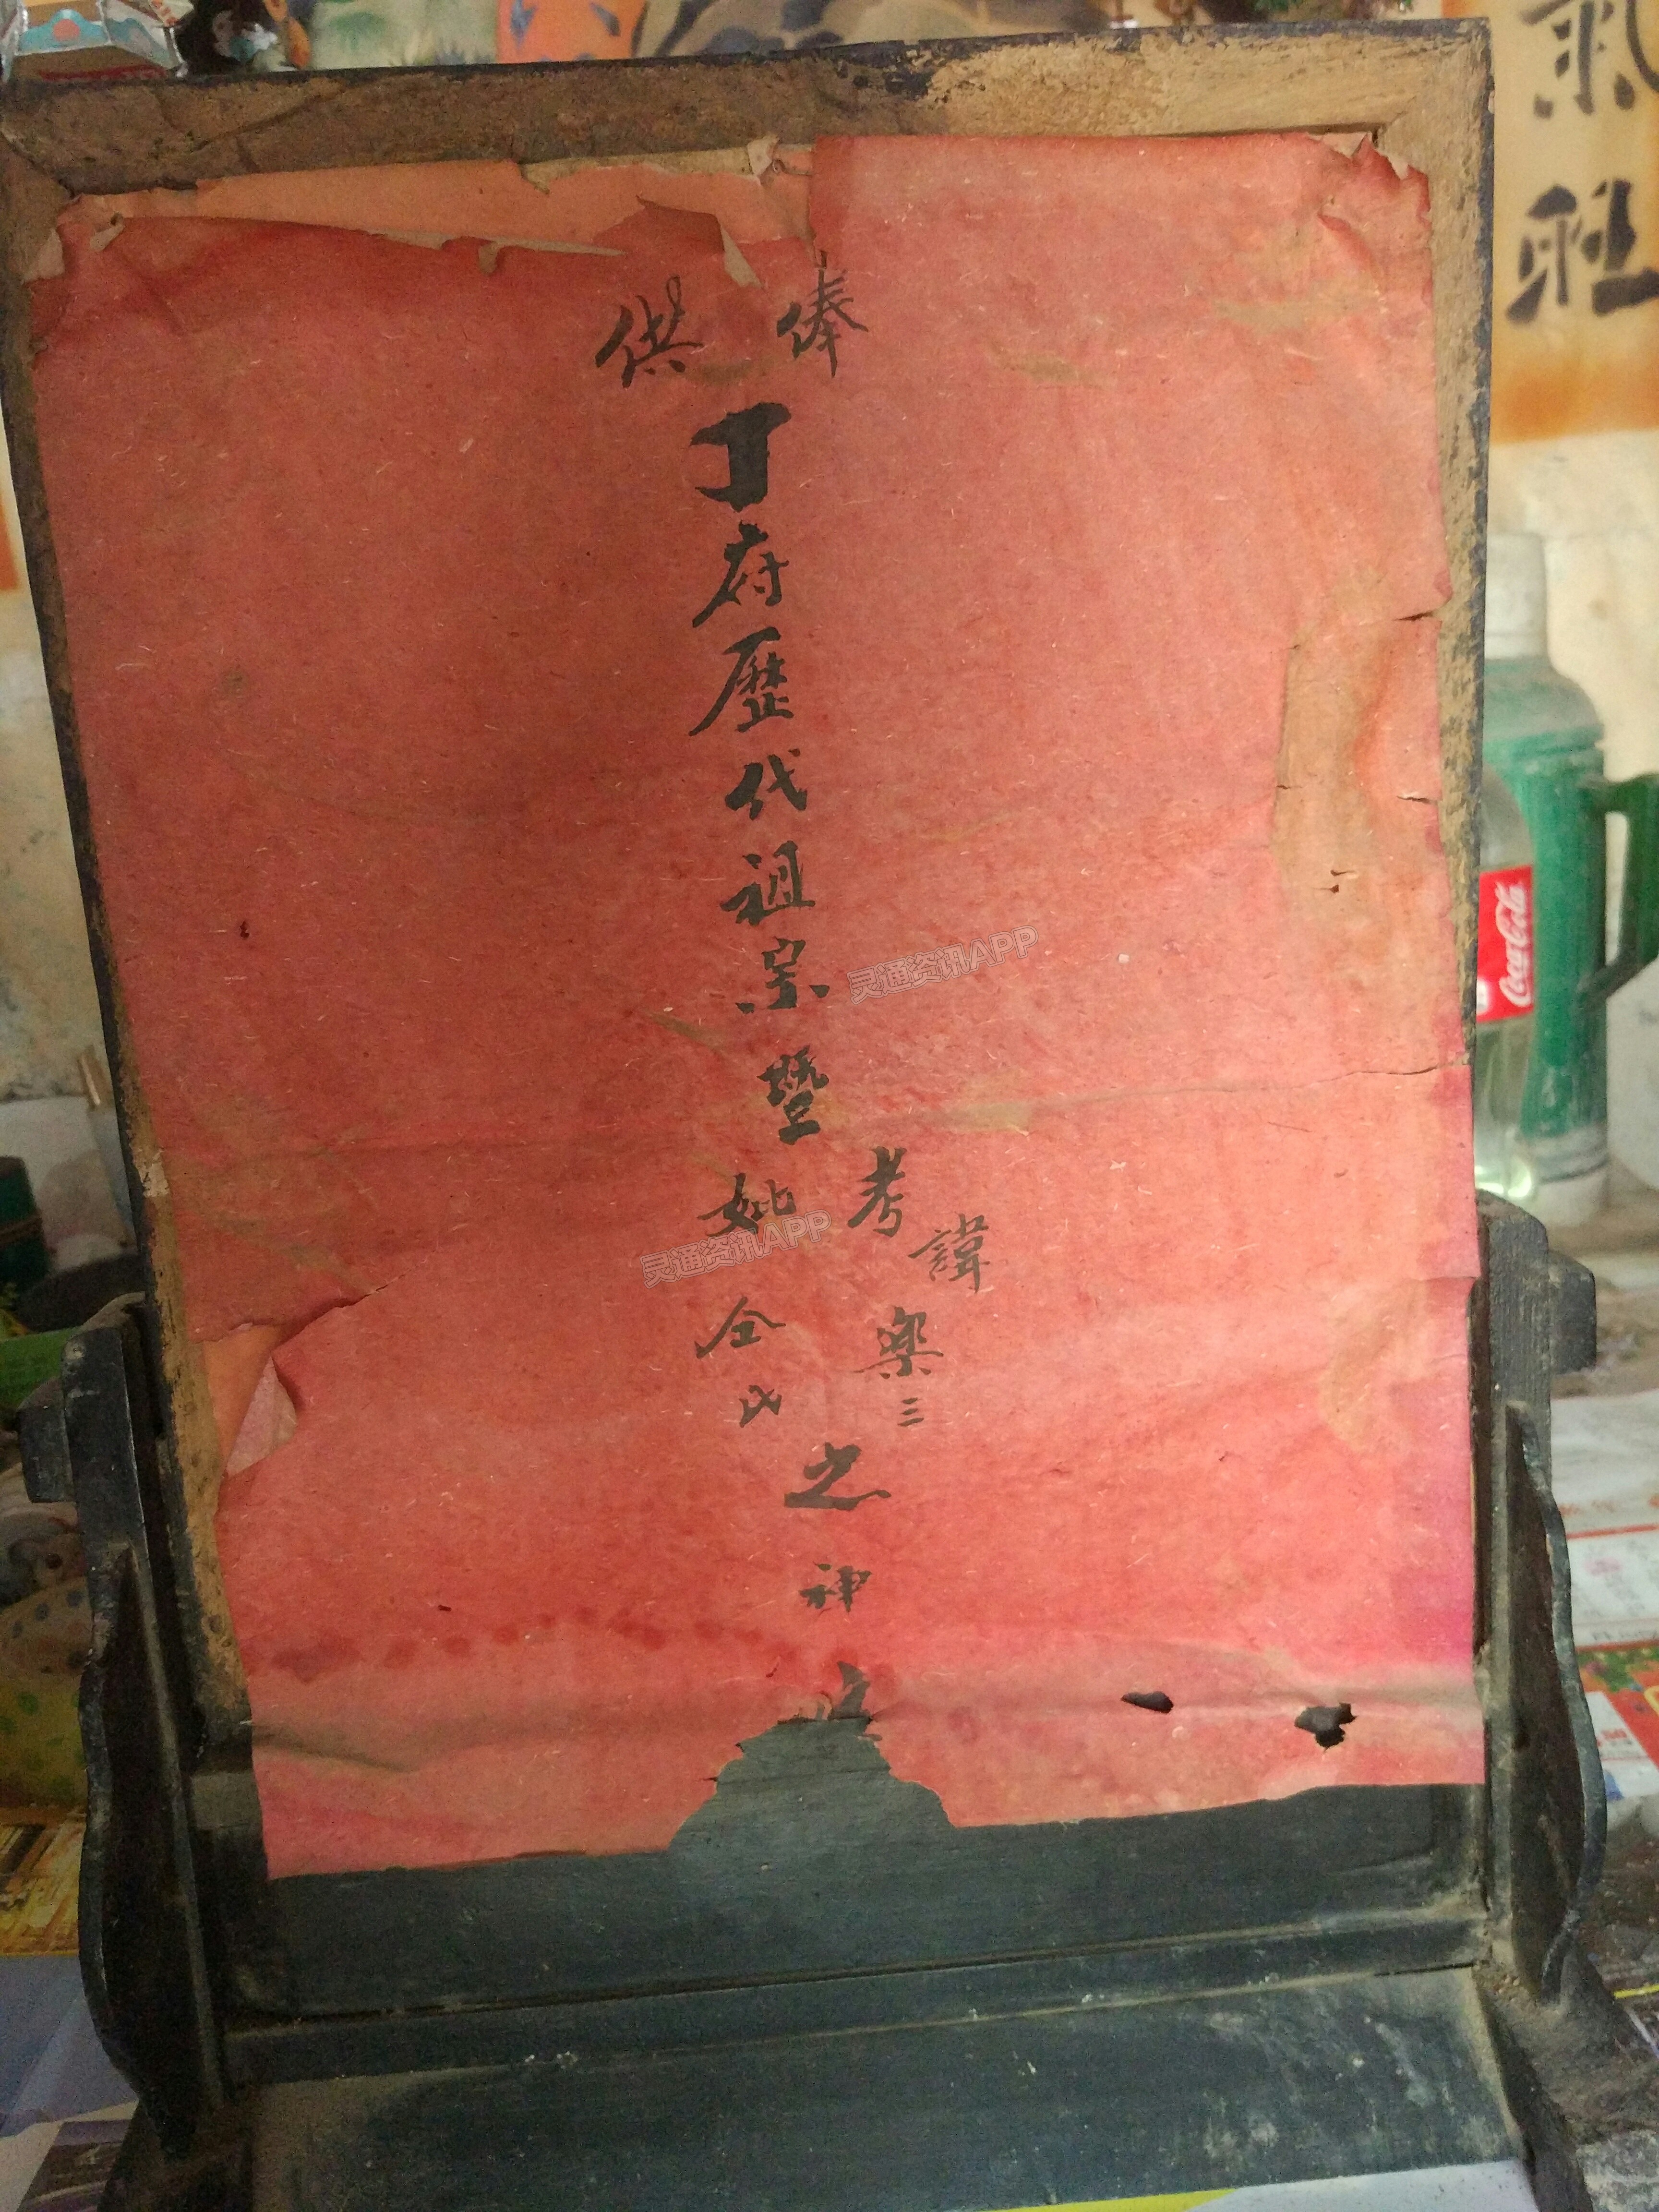 俸供
丁府歷代祖宗暨
考諱樂三
妣仝氏
之神
氣
旺
Coca-Cola
灵通资讯APP
灵通资讯APP